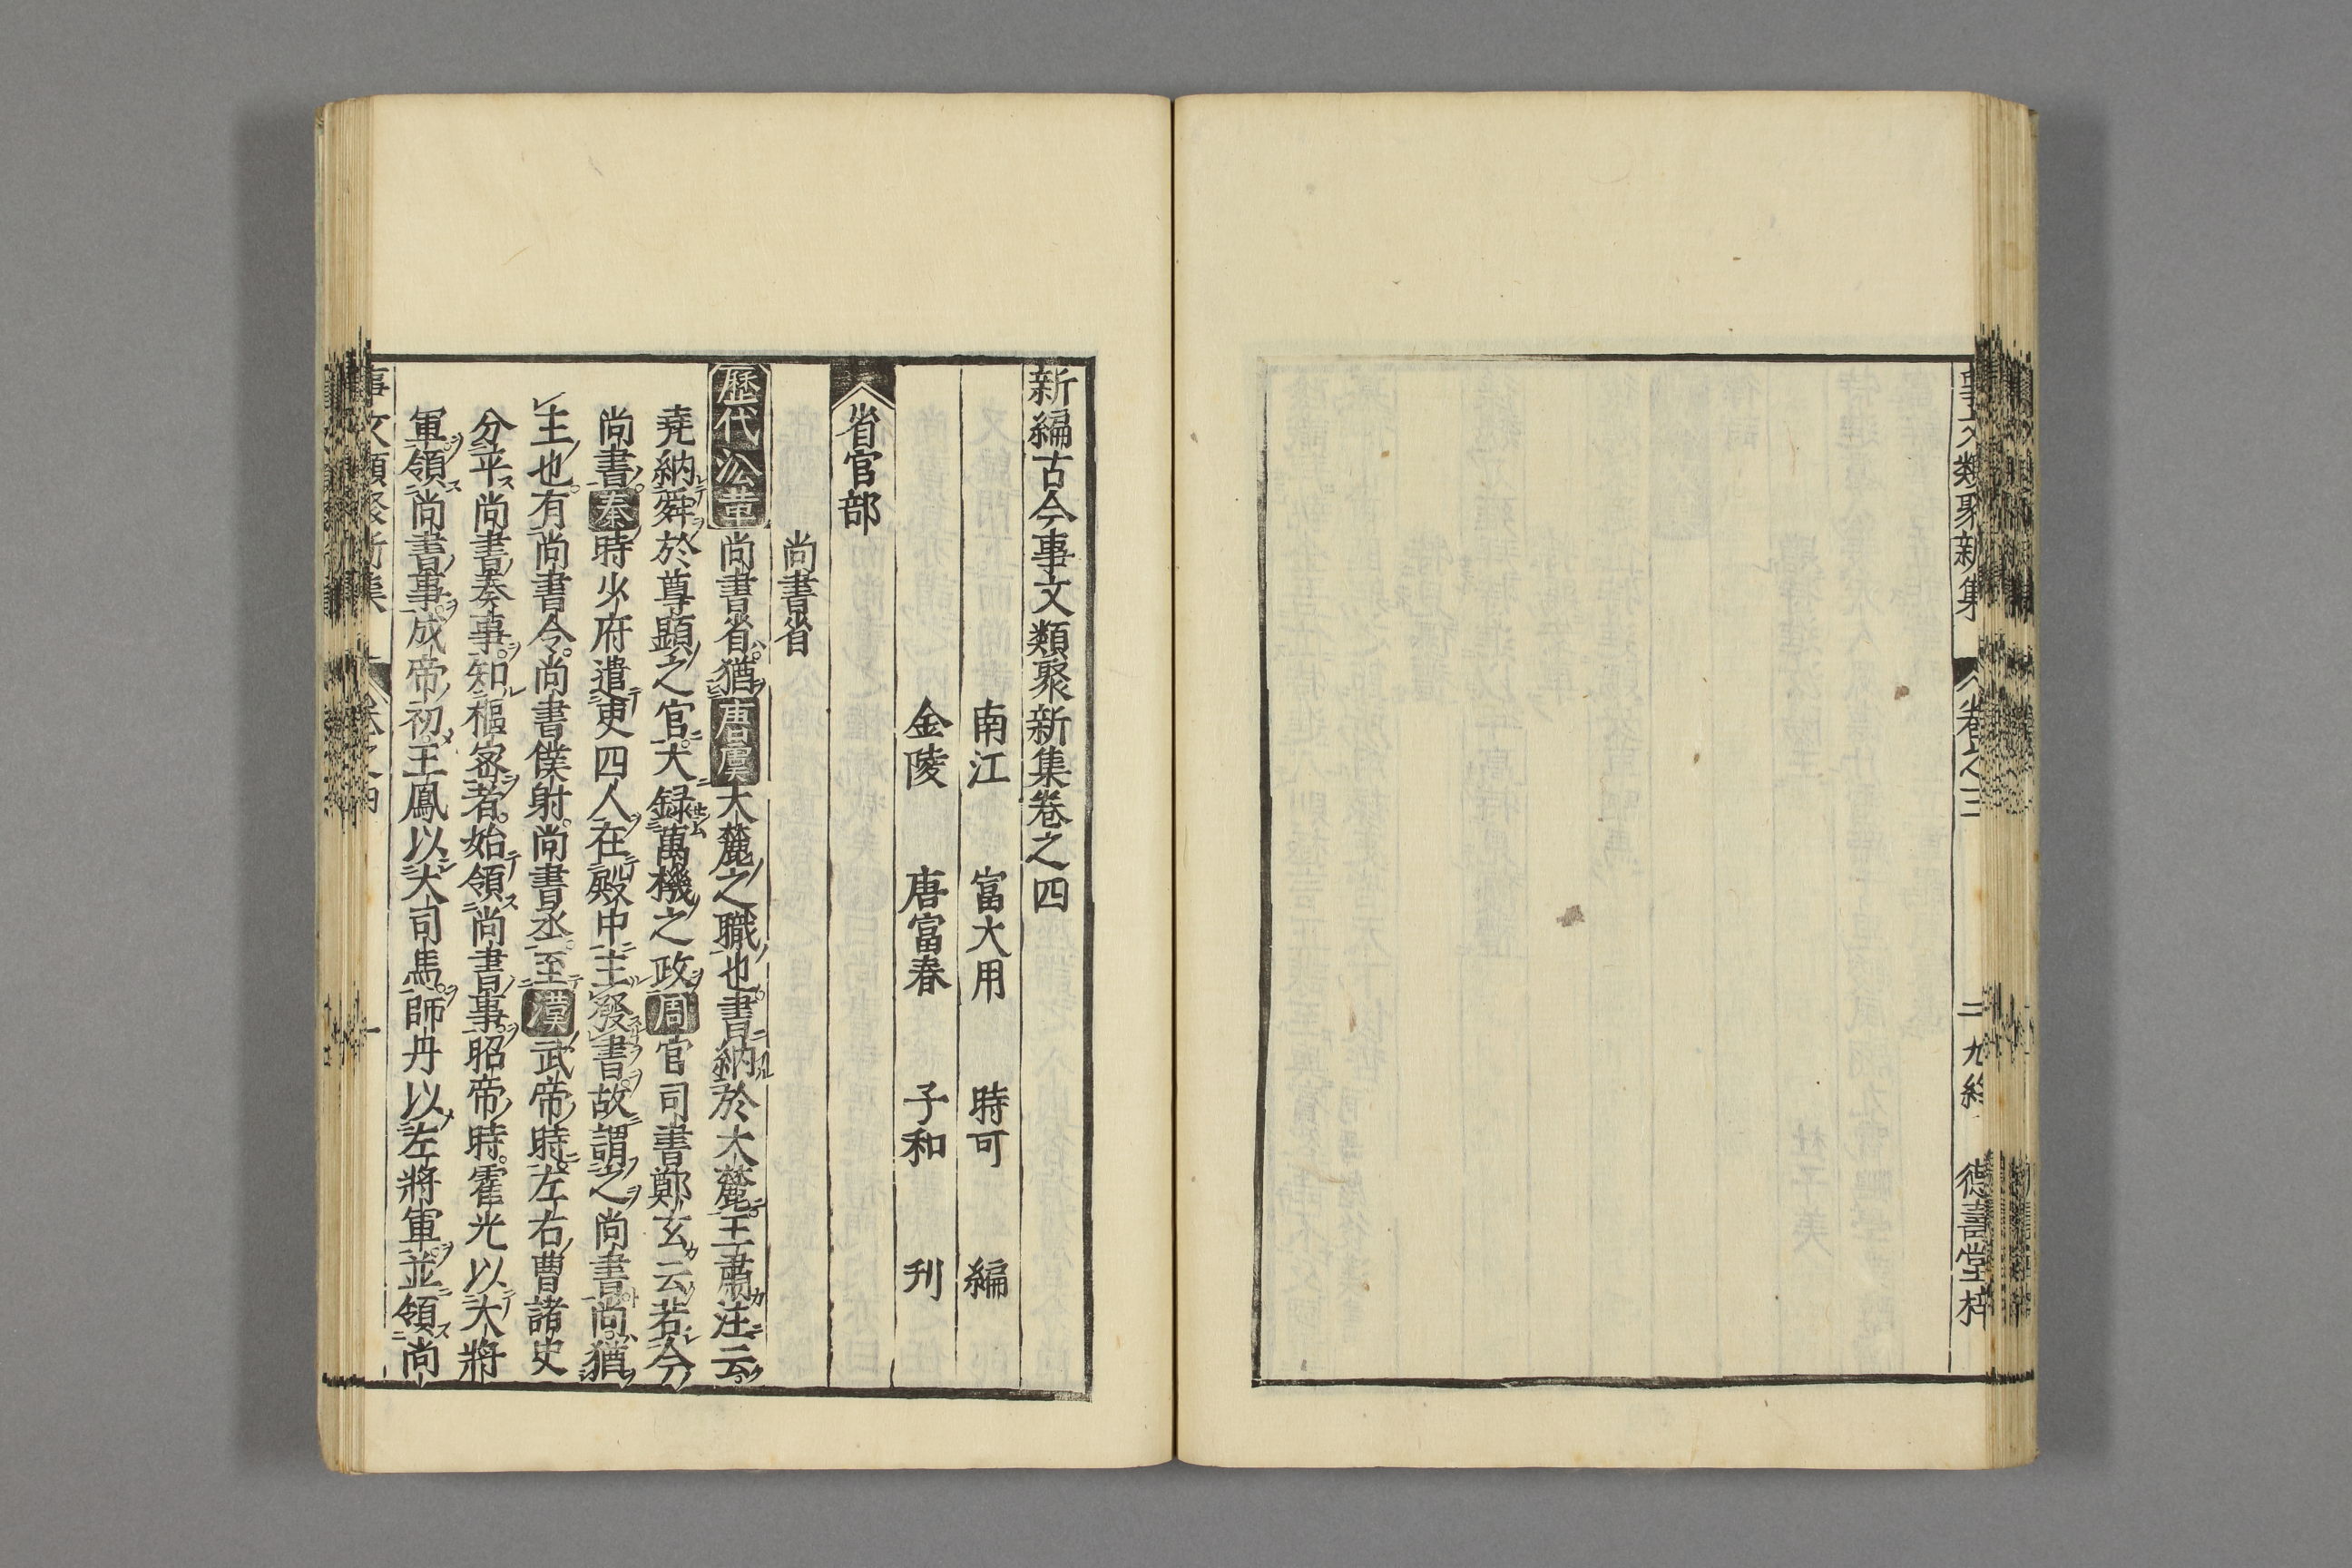 事文類聚新集　卷之三　二九終　德壽堂梓
新編古今事文類聚新集卷之四
南江　富大用　時可　編
金陵　唐富春　子和　刊
省官部
尚書省
歷代㳂革尚書省猶唐虞大麓之職也書納於大麓王肅注云
堯納舜於尊顯之官大録萬機之政周官司書鄭玄云若今
尚書秦時少府遣吏四人在殿中主發書故謂之尚書尚猶
主也有尚書令尚書僕射尚書丞至漢武帝時左右曹諸吏
分平尚書奏事知樞密者始領尚書事昭帝時霍光以大將
軍領尚書事成帝初王鳳以大司馬師丹以左將軍並領尚
事文類聚新集　卷之四　一